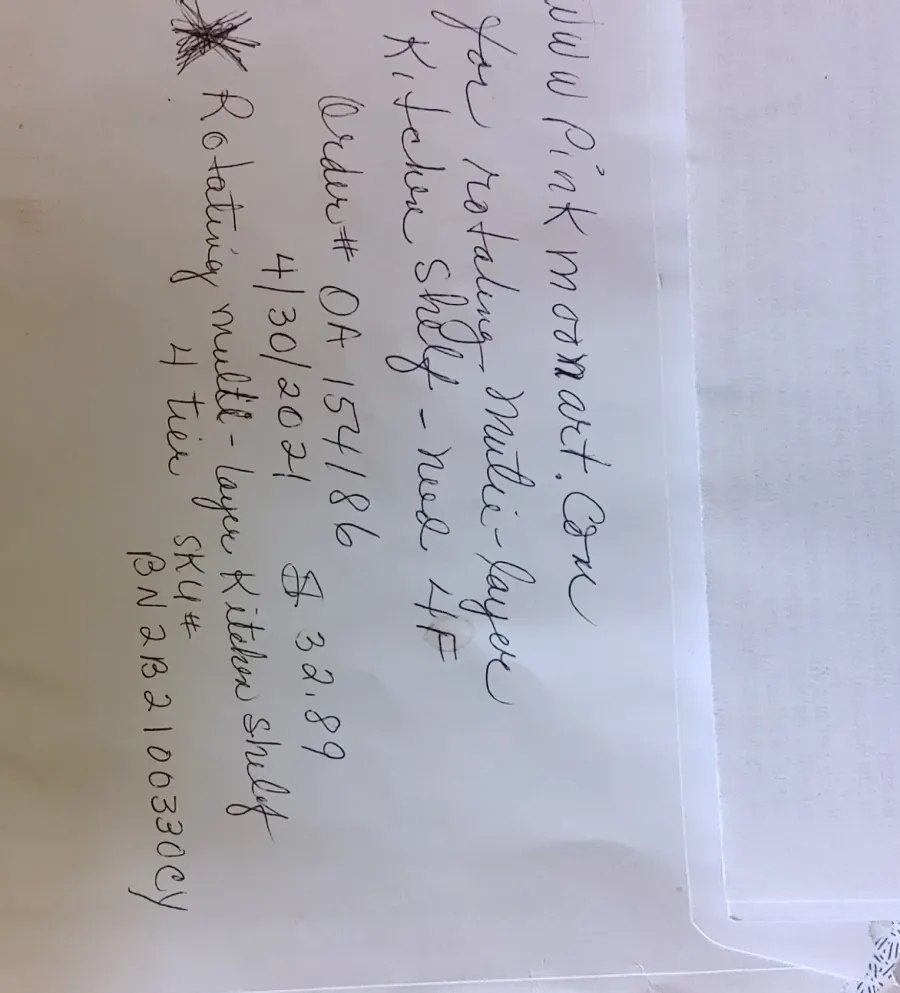 WWW Pinkmoomart.Com
for rotating, Mutli-layer
Kitchen Shelf - need 4F
Order # OA 154186
4/30/2021 $ 32.89
Rotating multi-layer Kitchen Shelf
4 tier SKU#
BN2B2100330CY